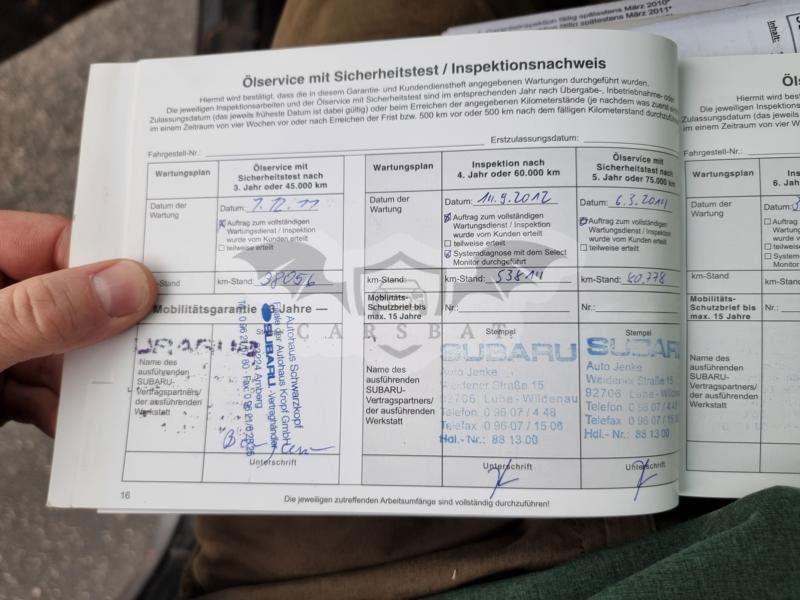 1. Garantieinspektion fällig spätestens März 2010*
fällig spätestens März 2011*
Inhalt:
Ölservice mit Sicherheitstest / Inspektionsnachweis
Hiermit wird bestätigt, dass die in diesem Garantie- und Kundendienstheft angegebenen Wartungen durchgeführt wurden.
Die jeweiligen Inspektionsarbeiten und der Ölservice mit Sicherheitstest sind im entsprechenden Jahr nach Übergabe-, Inbetriebnahme- oder
Zulassungsdatum (das jeweils früheste Datum ist dabei gültig) oder beim Erreichen der angegebenen Kilometerstände (je nachdem was zuerst
im einem Zeitraum von vier Wochen vor oder nach Erreichen der Frist bzw. 500 km vor oder 500 km nach dem fälligen Kilometerstand durchführen
Fahrgestell-Nr.: Erstzulassungsdatum:
Wartungsplan
Ölservice mit
Sicherheitstest nach
3. Jahr oder 45.000 km
Datum der
Wartung
Datum: 7.12.11
Auftrag zum vollständigen
Wartungsdienst / Inspektion
wurde vom Kunden erteilt
teilweise erteilt
km-Stand: 38056
Mobilitätsgarantie 3 Jahre —
Stempel
Name des
ausführenden
SUBARU-
Vertragspartners/
der ausführenden
Werkstatt
Autohaus Schwarzkopf
Filiale der Autohaus Kropf GmbH
SUBARU -Vertragshändler
Amberg
Unterschrift
Wartungsplan
Inspektion nach
4. Jahr oder 60.000 km
Ölservice mit
Sicherheitstest nach
5. Jahr oder 75.000 km
Datum der
Wartung
Datum: 14.9.2012
Auftrag zum vollständigen
Wartungsdienst / Inspektion
wurde vom Kunden erteilt
teilweise erteilt
Systemdiagnose mit dem Select
Monitor durchgeführt
Datum: 6.3.2014
Auftrag zum vollständigen
Wartungsdienst / Inspektion
wurde vom Kunden erteilt
teilweise erteilt
km-Stand: km-Stand: 53814 km-Stand: 60.778
Mobilitäts-
Schutzbrief bis
max. 15 Jahre
Nr.: Nr.:
Name des
ausführenden
SUBARU-
Vertragspartners/
der ausführenden
Werkstatt
Stempel
SUBARU
Auto Jenke
Weidener Straße 15
92706 Luhe-Wildenau
Telefon 0 96 07 / 4 48
Telefax 0 96 07 / 15 06
Hdl.-Nr.: 88 13 00
Unterschrift
Stempel
SUBARU
Auto Jenke
Weidener Straße 15
92706 Luhe-Wildenau
Telefon 0 96 07 / 4 48
Telefax 0 96 07 / 15 06
Hdl.-Nr.: 88 13 00
Unterschrift
16
Die jeweiligen zutreffenden Arbeitsumfänge sind vollständig durchzuführen!
Fahrgestell-Nr.:
Wartungsplan
Datum der
Wartung
km-Stand:
Mobilitäts-
Schutzbrief bis
max. 15 Jahre
Name des
ausführenden
SUBARU-
Vertragspartners/
der ausführenden
Werkstatt
CARSBAT